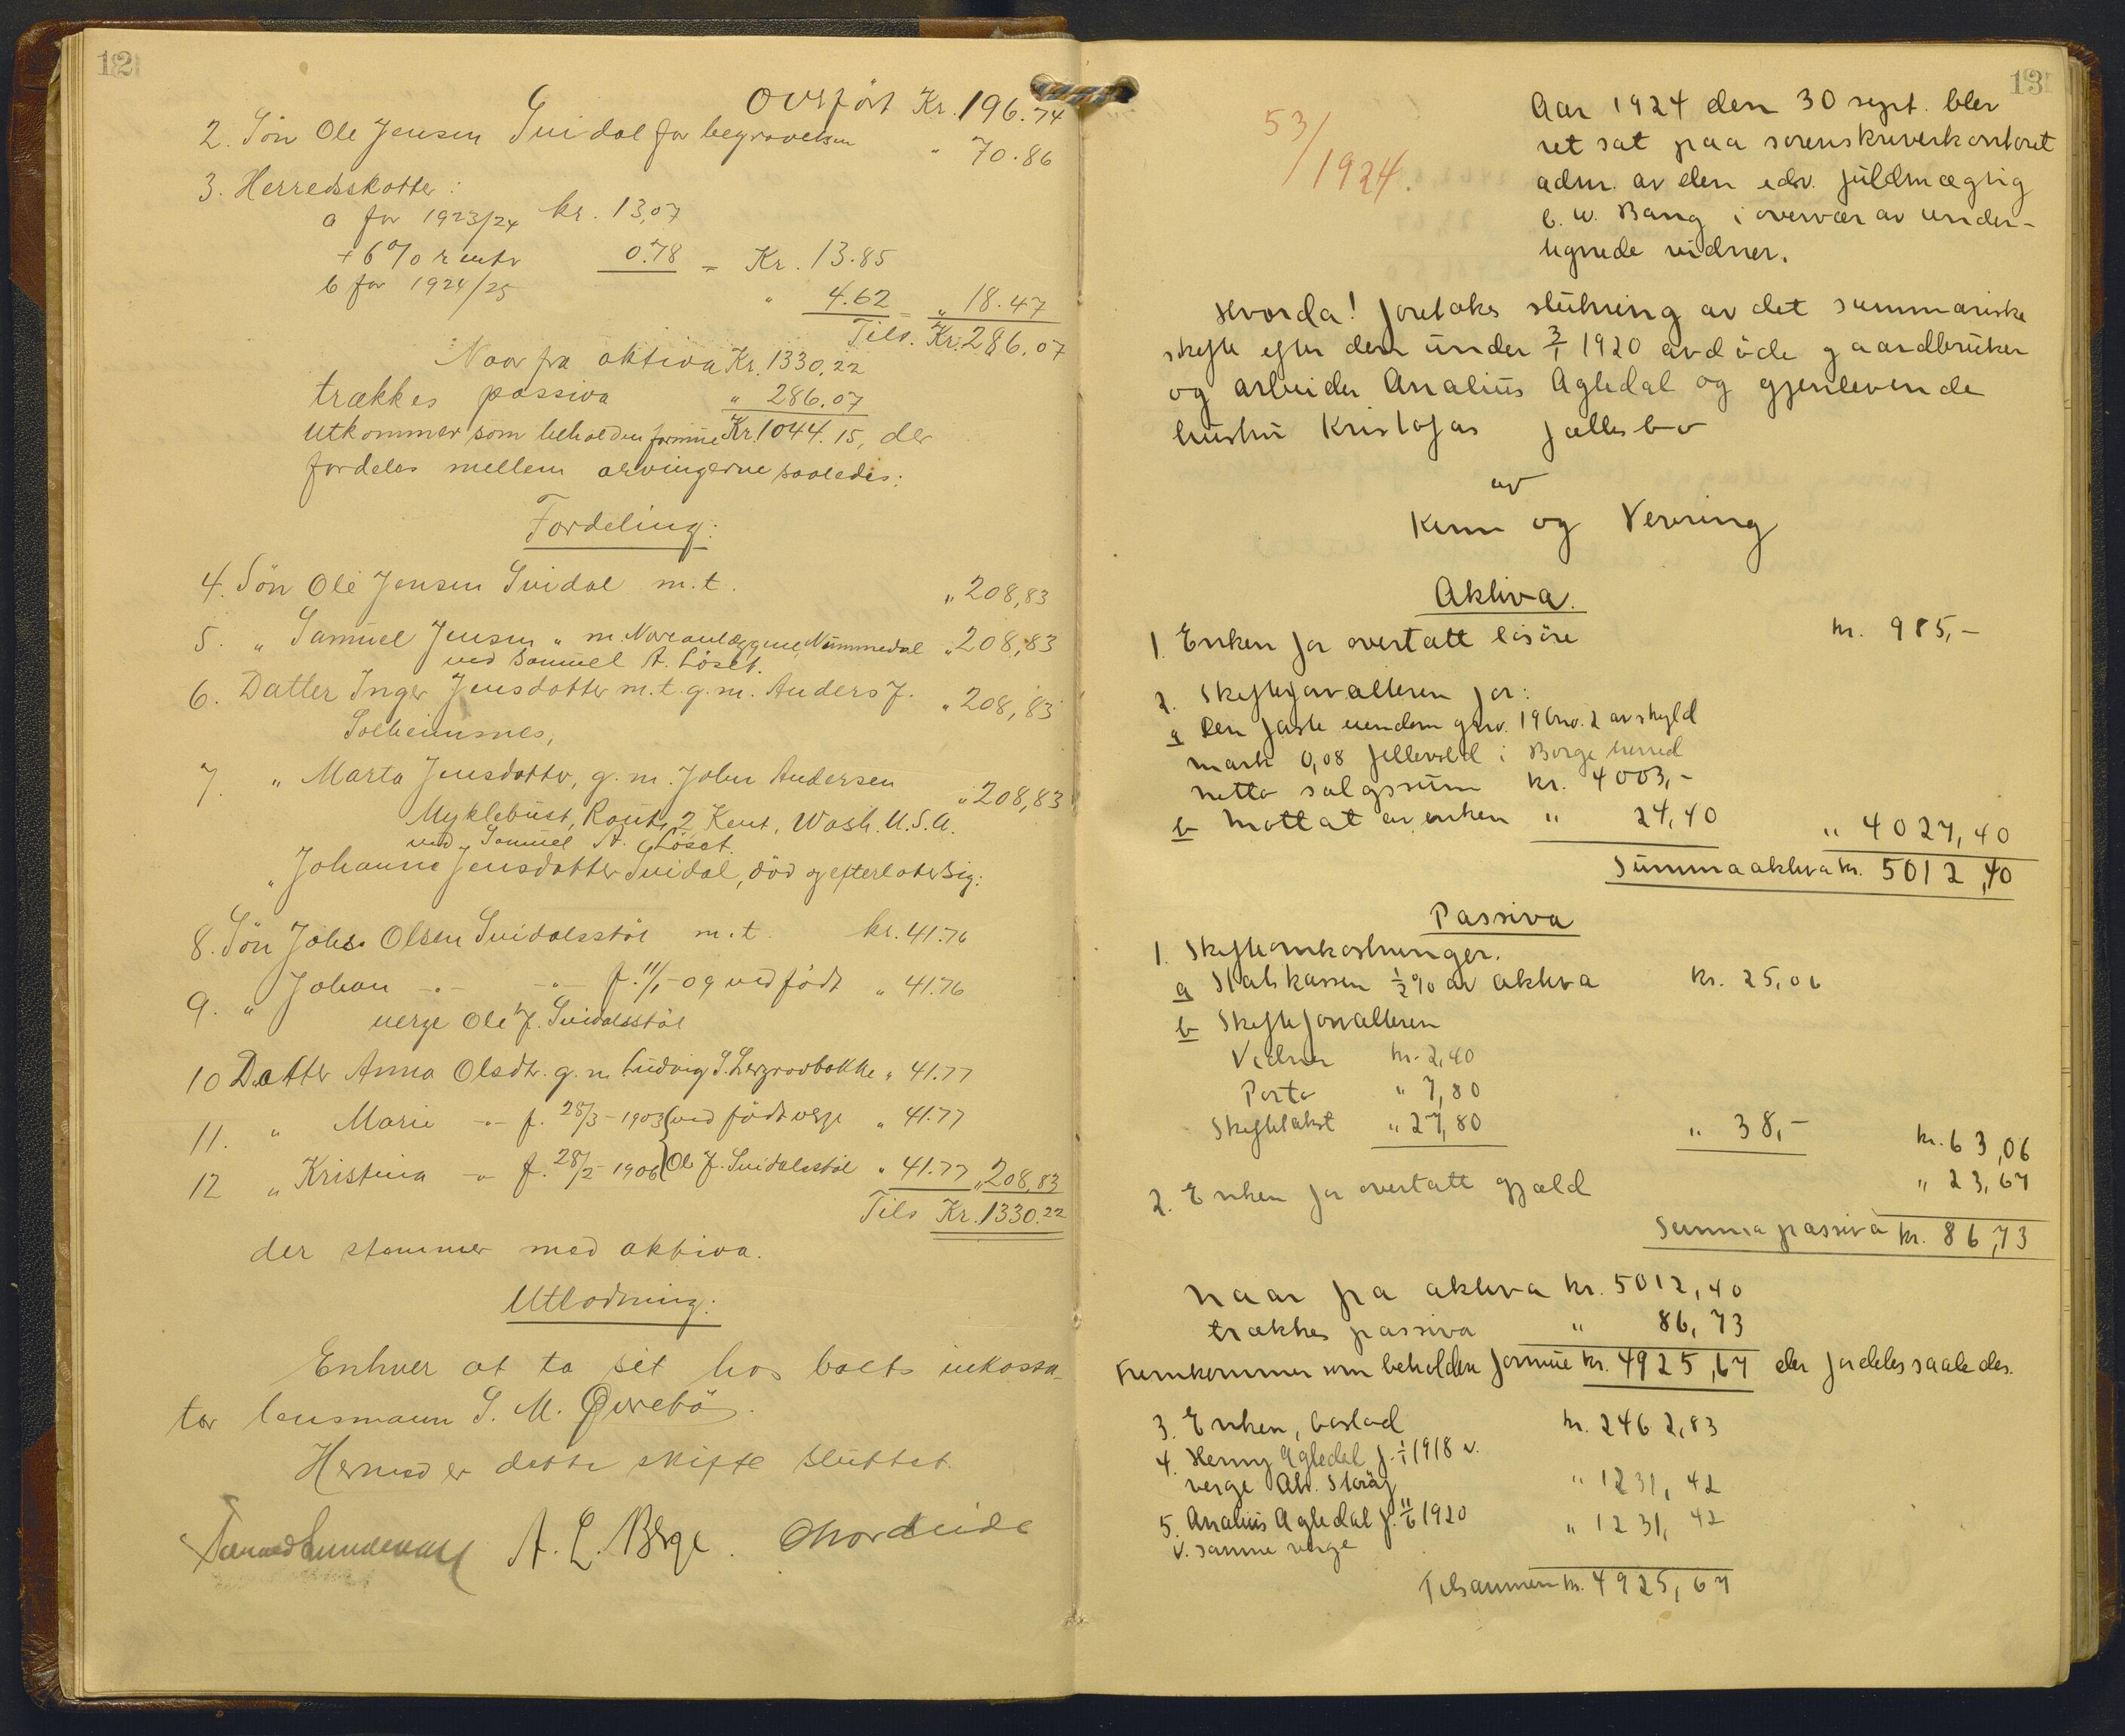 12
Overført Kr. 196.74
2. Søn Ole Jensen Svidal for begravelsen " 70.86
3. Herredsskatter:
a for 1923/24 kr. 13,07
+ 6% rente 0.78 = Kr. 13.85
b for 1924/25 " 4.62 = " 18.47
Tils. Kr. 286.07
Naar fra aktiva Kr. 1330,22
trækkes passiva " 286.07
utkommer som beholden formue Kr. 1044.15, der
fordeles mellem arvingerne saaledes:
Fordeling:
4. Søn Ole Jensen Svidal m.t. " 208,83
5. " Samuel Jensen " m. Nummedal " 208,83
ved Samuel A. Løset.
6. Datter Inger Jensdotter m.t. g.m. Anders J. " 208,83
Solheimsnes,
7. " Marta Jensdotter, g.m. John Andersen
Myklebust, Route 2 Kent, Wash. U.S.A. " 208,83
ved Samuel A. Løset.
" Johanne Jensdotter Svidal, død og efterlater sig:
8. Søn Johs. Olsen Svidalsstøl m.t. kr. 41.76
9. " Johan -"- -"- f. 11/1-09 ved født " 41.76
verge Ole J. Svidalsstøl
10 Datter Anna Olsdtr. g.m. Ludvig S. " 41.77
11. " Marie -"- f. 28/3-1903 ved født verge " 41.77
12 " Kristina -"- f. 28/2-1906 Ole J. Svidalsstøl " 41.77 " 208,83
Tils Kr. 1330.22
der stemmer med aktiva.
Utlodning:
Enhver at ta sit hos boets inkassa-
tor lensmann S. M. Øvrebø.
Hermed er dette skifte sluttet.
A. L. Berge.
13
53/1924.
Aar 1924 den 30 sept. blev
ret sat paa sorenskriverkontoret
adm. av den edsv. fuldmægtig
C. W. Bang i overvær av under-
tegnede vidner.
Hvorda! foretokes slutning av det summariske
skifte efter den under 3/1 1920 avdøde gaardbruker
og arbeider Analius Agledal og gjenlevende
hustru Kristofas fællesbo
av
Kinn og Vevring
Aktiva.
1. Enken for overtatt løsøre kr. 985,-
2. Skifteforvalteren for:
a Den faste eiendom gnr. 19 bnr. 2 av skyld
mark 0,08 Jellevold i Borge herred
netto salgssum kr. 4003,-
b Mottat av enken " 24,40 " 4027,40
Summa aktiva kr. 5012,40
Passiva
1. Skifteomkostninger.
a Statskassen 1/2 % av aktiva kr. 25,06
b Skifteforvalteren
Vidner kr. 2,40
Porto " 7,80
Skiftetakst " 27,80 " 38,- kr. 63,06
2. Enken for overtatt gjæld " 23,67
Summa passiva kr. 86,73
Naar fra aktiva kr. 5012,40
trækkes passiva " 86,73
fremkommer som beholden formue kr. 4925,67 der fordeles saaledes.
3. Enken, boslod kr. 2462,83
4. Henny Agledal f. 1/1 1918 v.
verge " 1231,42
5. Analius Agledal f. 11/6 1920 " 1231,42
v. samme verge
Tilsammen kr. 4925,67